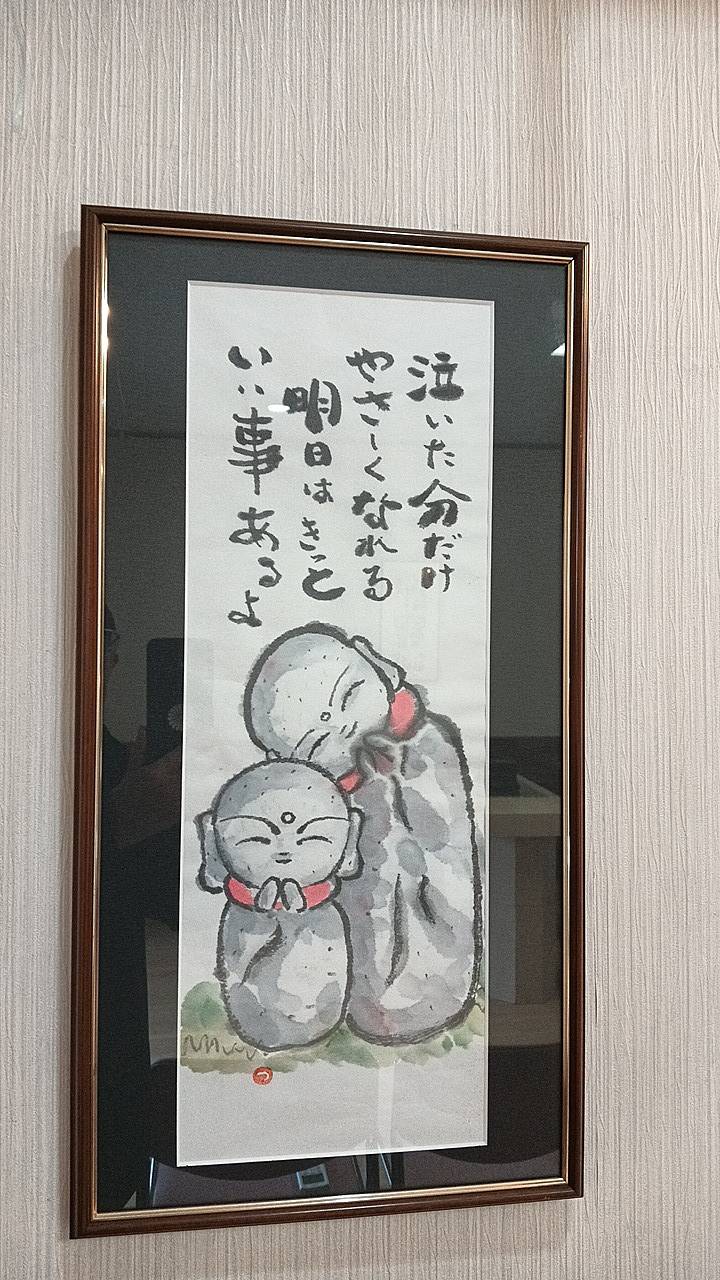 泣いた分だけ
やさしくなれる
明日はきっと
いい事あるよ
つ